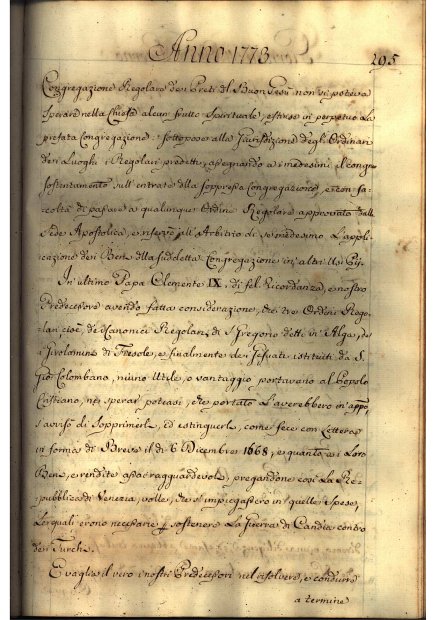 Anno 1773
295
Congregazione Regolare dei Preti del Buon Gesù non vi poteva
sperare nella Chiesa alcun frutto Spirituale, estinse in perpetuo la
prefata Congregazione: sottopose alla Jurisdizione degl'Ordinari
dei Luoghi i Regolari predetti, assegnando a' medesimi il congruo
sostentamento sull'entrate della soppressa Congregazione, e con fa-
coltà di passare a qualunque Ordine Regolare approvato dalla
Sede Apostolica, e riservò all'Arbitrio di se medesimo l'appli-
cazione dei Beni della suddetta Congregazione in altri Usi Pij.
In ultimo Papa Clemente IX, di fel. Ricordanza, e nostro
Predecessore avendo fatta considerazione, che tre Ordini Rego-
lari cioè, de' Canonici Regolari di S. Gregorio detti in Alga, de
i Girolamini di Fiesole, e finalmente dei Jesuati istituiti da S.
Gio. Colombano, niuno Utile, o vantaggio portavano al Popolo
Cristiano, nè sperar poteasi, che portato l'averebbero in app.o,
s'avvisò di sopprimerli, ed estinguerli, come fece con Lettera
in forma di Breve il dì 6 Dicembre 1668, e quanto ai Loro
Beni, e rendite assai ragguardevoli, pregandone così la Re-
pubblica di Venezia, volle, che s'impiegassero in quelle spese,
Le quali erono necessarie p sostenere La Guerra di Candia contro
dei Turchi.
E vaglia il vero i nostri Predecessori nel risolvere, e condurre
a termine